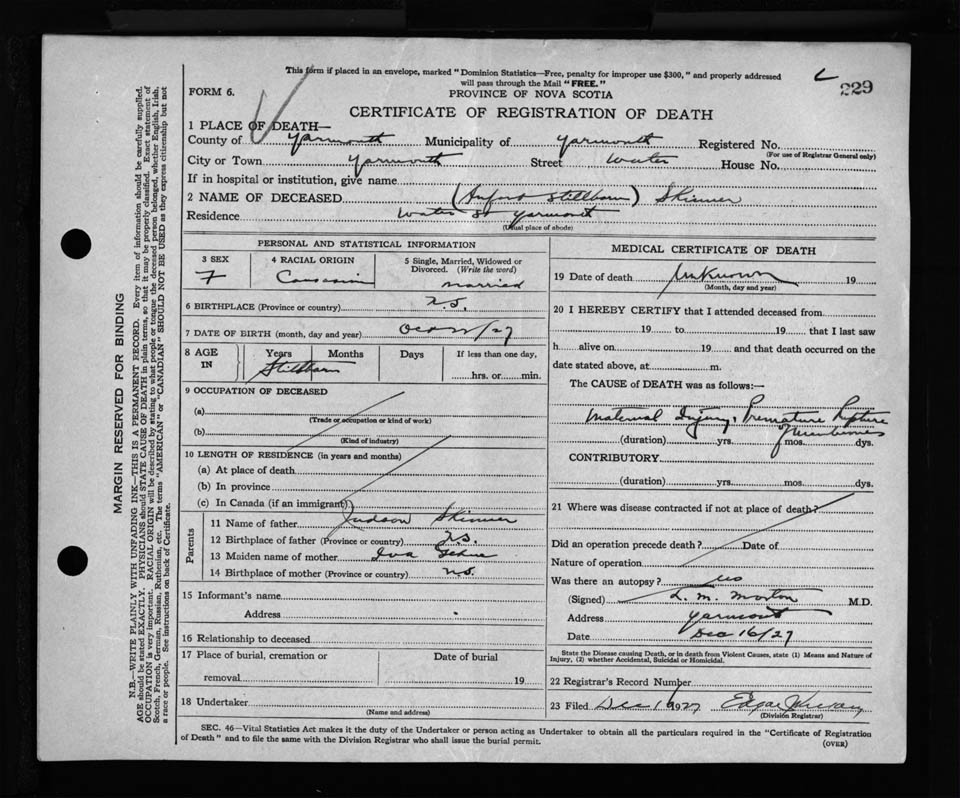 This form if placed in an envelope, marked "Dominion Statistics—Free, penalty for improper use $300," and properly addressed
will pass through the Mail "FREE."
229
FORM 6.
PROVINCE OF NOVA SCOTIA
CERTIFICATE OF REGISTRATION OF DEATH
1 PLACE OF DEATH—
County of Yarmouth Municipality of Yarmouth Registered No.
(For use of Registrar General only)
City or Town Yarmouth Street Water House No.
If in hospital or institution, give name
2 NAME OF DECEASED (Stillborn) Skinner
Residence Water St Yarmouth
(Usual place of abode)
PERSONAL AND STATISTICAL INFORMATION
3 SEX 4 RACIAL ORIGIN 5 Single, Married, Widowed or
Divorced. (Write the word)
F married
6 BIRTHPLACE (Province or country) N.S.
7 DATE OF BIRTH (month, day and year)
8 AGE IN Years Months Days If less than one day,
Stillborn hrs. or min.
9 OCCUPATION OF DECEASED
(a)
(Trade or occupation or kind of work)
(b)
(Kind of industry)
10 LENGTH OF RESIDENCE (in years and months)
(a) At place of death
(b) In province
(c) In Canada (if an immigrant)
Parents
11 Name of father Judson Skinner
12 Birthplace of father (Province or country) N.S.
13 Maiden name of mother Iva
14 Birthplace of mother (Province or country) N.S.
15 Informant's name
Address
16 Relationship to deceased
17 Place of burial, cremation or Date of burial
removal 19
18 Undertaker
(Name and address)
MEDICAL CERTIFICATE OF DEATH
19 Date of death Unknown 19
(Month, day and year)
20 I HEREBY CERTIFY that I attended deceased from
19 to 19 that I last saw
h alive on 19 and that death occurred on the
date stated above, at m.
The CAUSE of DEATH was as follows:—
Maternal Injury, Premature Rupture
Membranes
(duration) yrs. mos. dys.
CONTRIBUTORY
(duration) yrs. mos. dys.
21 Where was disease contracted if not at place of death?
Did an operation precede death? Date of
Nature of operation
Was there an autopsy?
(Signed) L. M. Morton M.D.
Address Yarmouth
Date Dec 16/27
State the Disease causing Death, or in death from Violent Causes, state (1) Means and Nature of
Injury, (2) whether Accidental, Suicidal or Homicidal.
22 Registrar's Record Number
23 Filed Dec 1927 Edgar
(Division Registrar)
SEC. 46—Vital Statistics Act makes it the duty of the Undertaker or person acting as Undertaker to obtain all the particulars required in the "Certificate of Registration
of Death" and to file the same with the Division Registrar who shall issue the burial permit.
(OVER)
MARGIN RESERVED FOR BINDING
N.B.—WRITE PLAINLY WITH UNFADING INK—THIS IS A PERMANENT RECORD. Every item of information should be carefully supplied.
AGE should be stated EXACTLY. PHYSICIANS should STATE CAUSE OF DEATH in plain terms, so that it may be properly classified. Exact statement of
OCCUPATION is very important. RACIAL ORIGIN will be described by stating to what people or tongue the deceased person belonged, whether English, Irish,
Scotch, French, German, Russian, Ruthenian, etc. The terms "AMERICAN" or "CANADIAN" SHOULD NOT BE USED as they express citizenship but not
a race or people. See instructions on back of Certificate.